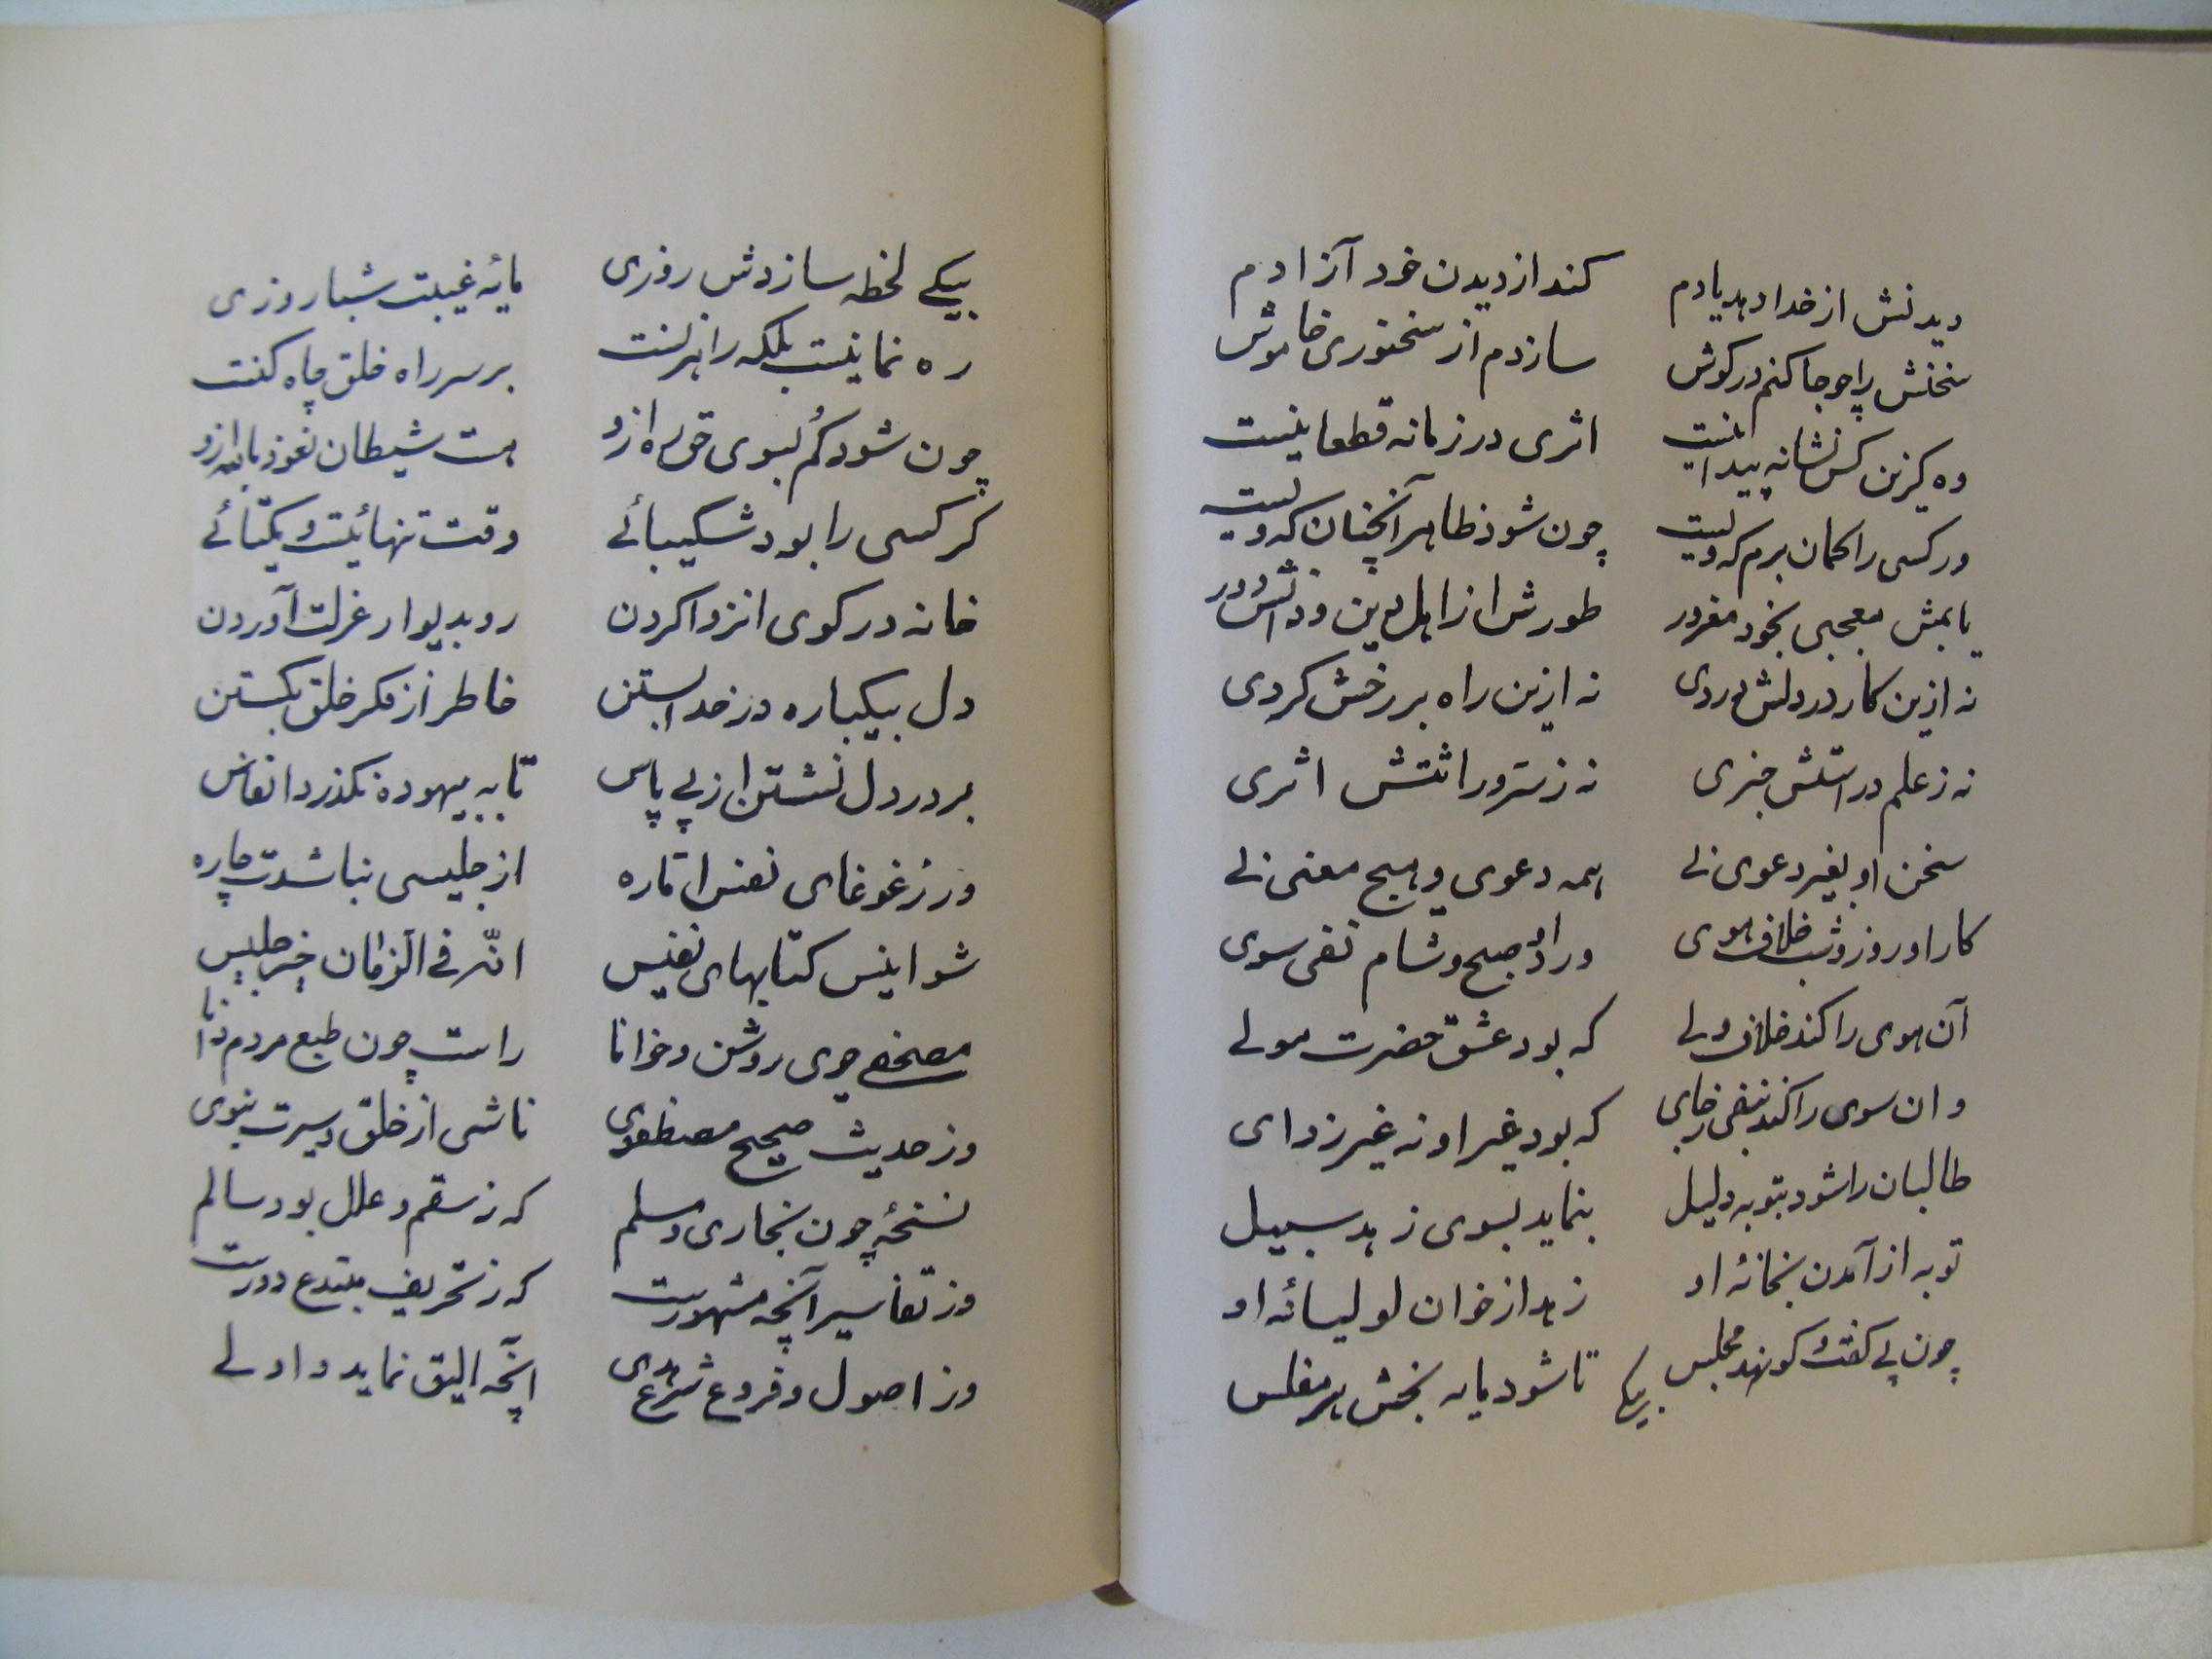 دیدنش از خدا دهد یادم کند از دیدن خود آزادم
سخنش را چو جا کنم در گوش سازدم از سخنوری خاموش
وه کزین کس نشانه پیدا نیست اثری در زمانه قطعا نیست
ور کسی را گمان برم که ولیست چون شود ظاهر آنچنان که ولیست
یابمش معجبی بخود مغرور طورش از اهل دین و دانش دور
نه ازین کار در دلش دردی نه ازین راه بر رخش گردی
نه ز علم دراستش خبری نه ز سرّ وراثتش اثری
سخن او بغیر دعوی نے همه دعوی و هیچ معنی نے
کار او روز و شب خلاف هوی ورد او صبح و شام نفی سوی
آن هوی را کند خلاف ولے که بود عشق حضرت مولے
وان سوی را کند بنفی رهای که بود غیر او نه غیر زدای
طالبان را شود بتوبه دلیل بنماید بسوی زهد سبیل
توبه از آمدن بخانهٔ او زهد از خوان لولیسانهٔ او
چون پی گفت و گو نهد مجلس تا شود مایه بخش هر مفلس
بیکے لحظه سازدش روزی مایهٔ غیبت شبا روزی
ره نما نیست بلکه راهزنست بر سر راه خلق چاه کنست
چون شود گُم بسوی حق ره ازو هست شیطان نعوذ بالله ازو
گر کسی را بود شکیبائے وقت تنهائیست و یکتائے
خانه در کوی انزوا کردن رو بدیوار عزلت آوردن
دل بیکباره در خدا بستن خاطر از فکر خلق بگسستن
بر در دل نشستن از پے پاس تا به بیهوده نگذرد انفاس
ور ز غوغای نفس امّاره از جلیسی نباشدت چاره
شو انیس کتابهای نفیس انّه فی الزمان خیر جلیس
مصحفے جوی روشن و خوانا راست چون طبع مردم دانا
وز حدیث صحیح مصطفوی ناشی از خلق و سیرت نبوی
نسخهٔ چون بخاری و مسلم که ز سقم و علل بود سالم
وز تفاسیر آنچه مشهورست که ز تحریف مبتدع دورست
وز اصول و فروع شرع هدی آنچه الیق نماید و اولے